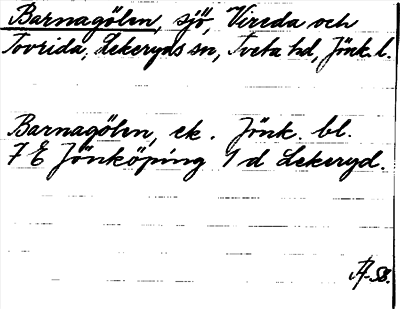 Barnagölen, sjö, Vireda och
Tovrida, Lekeryds sn, Tveta hd, Jönk. l.
Barnagölen, ek. Jönk. bl.
7 E Jönköping 1 d Lekeryd.